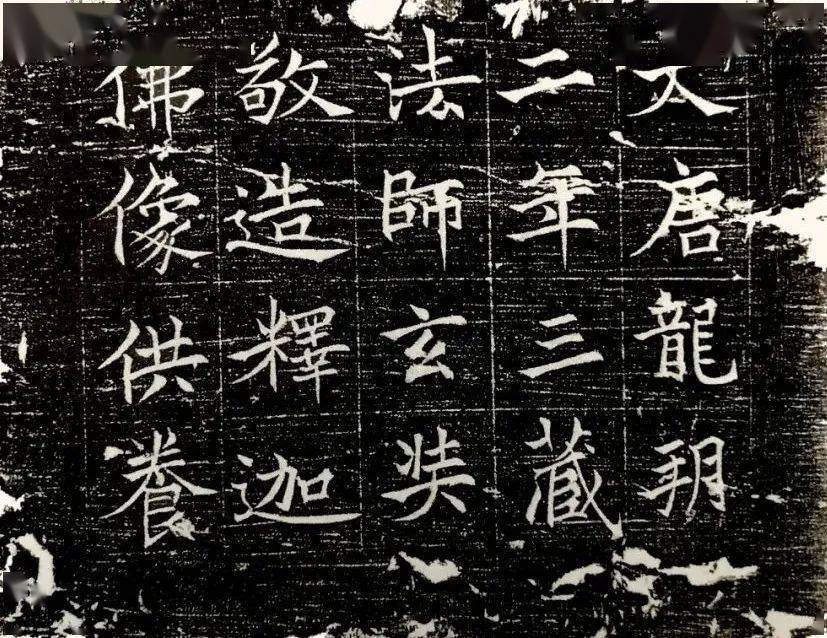 大唐龍朔
二年三藏
法師玄奘
敬造釋迦
佛像供養